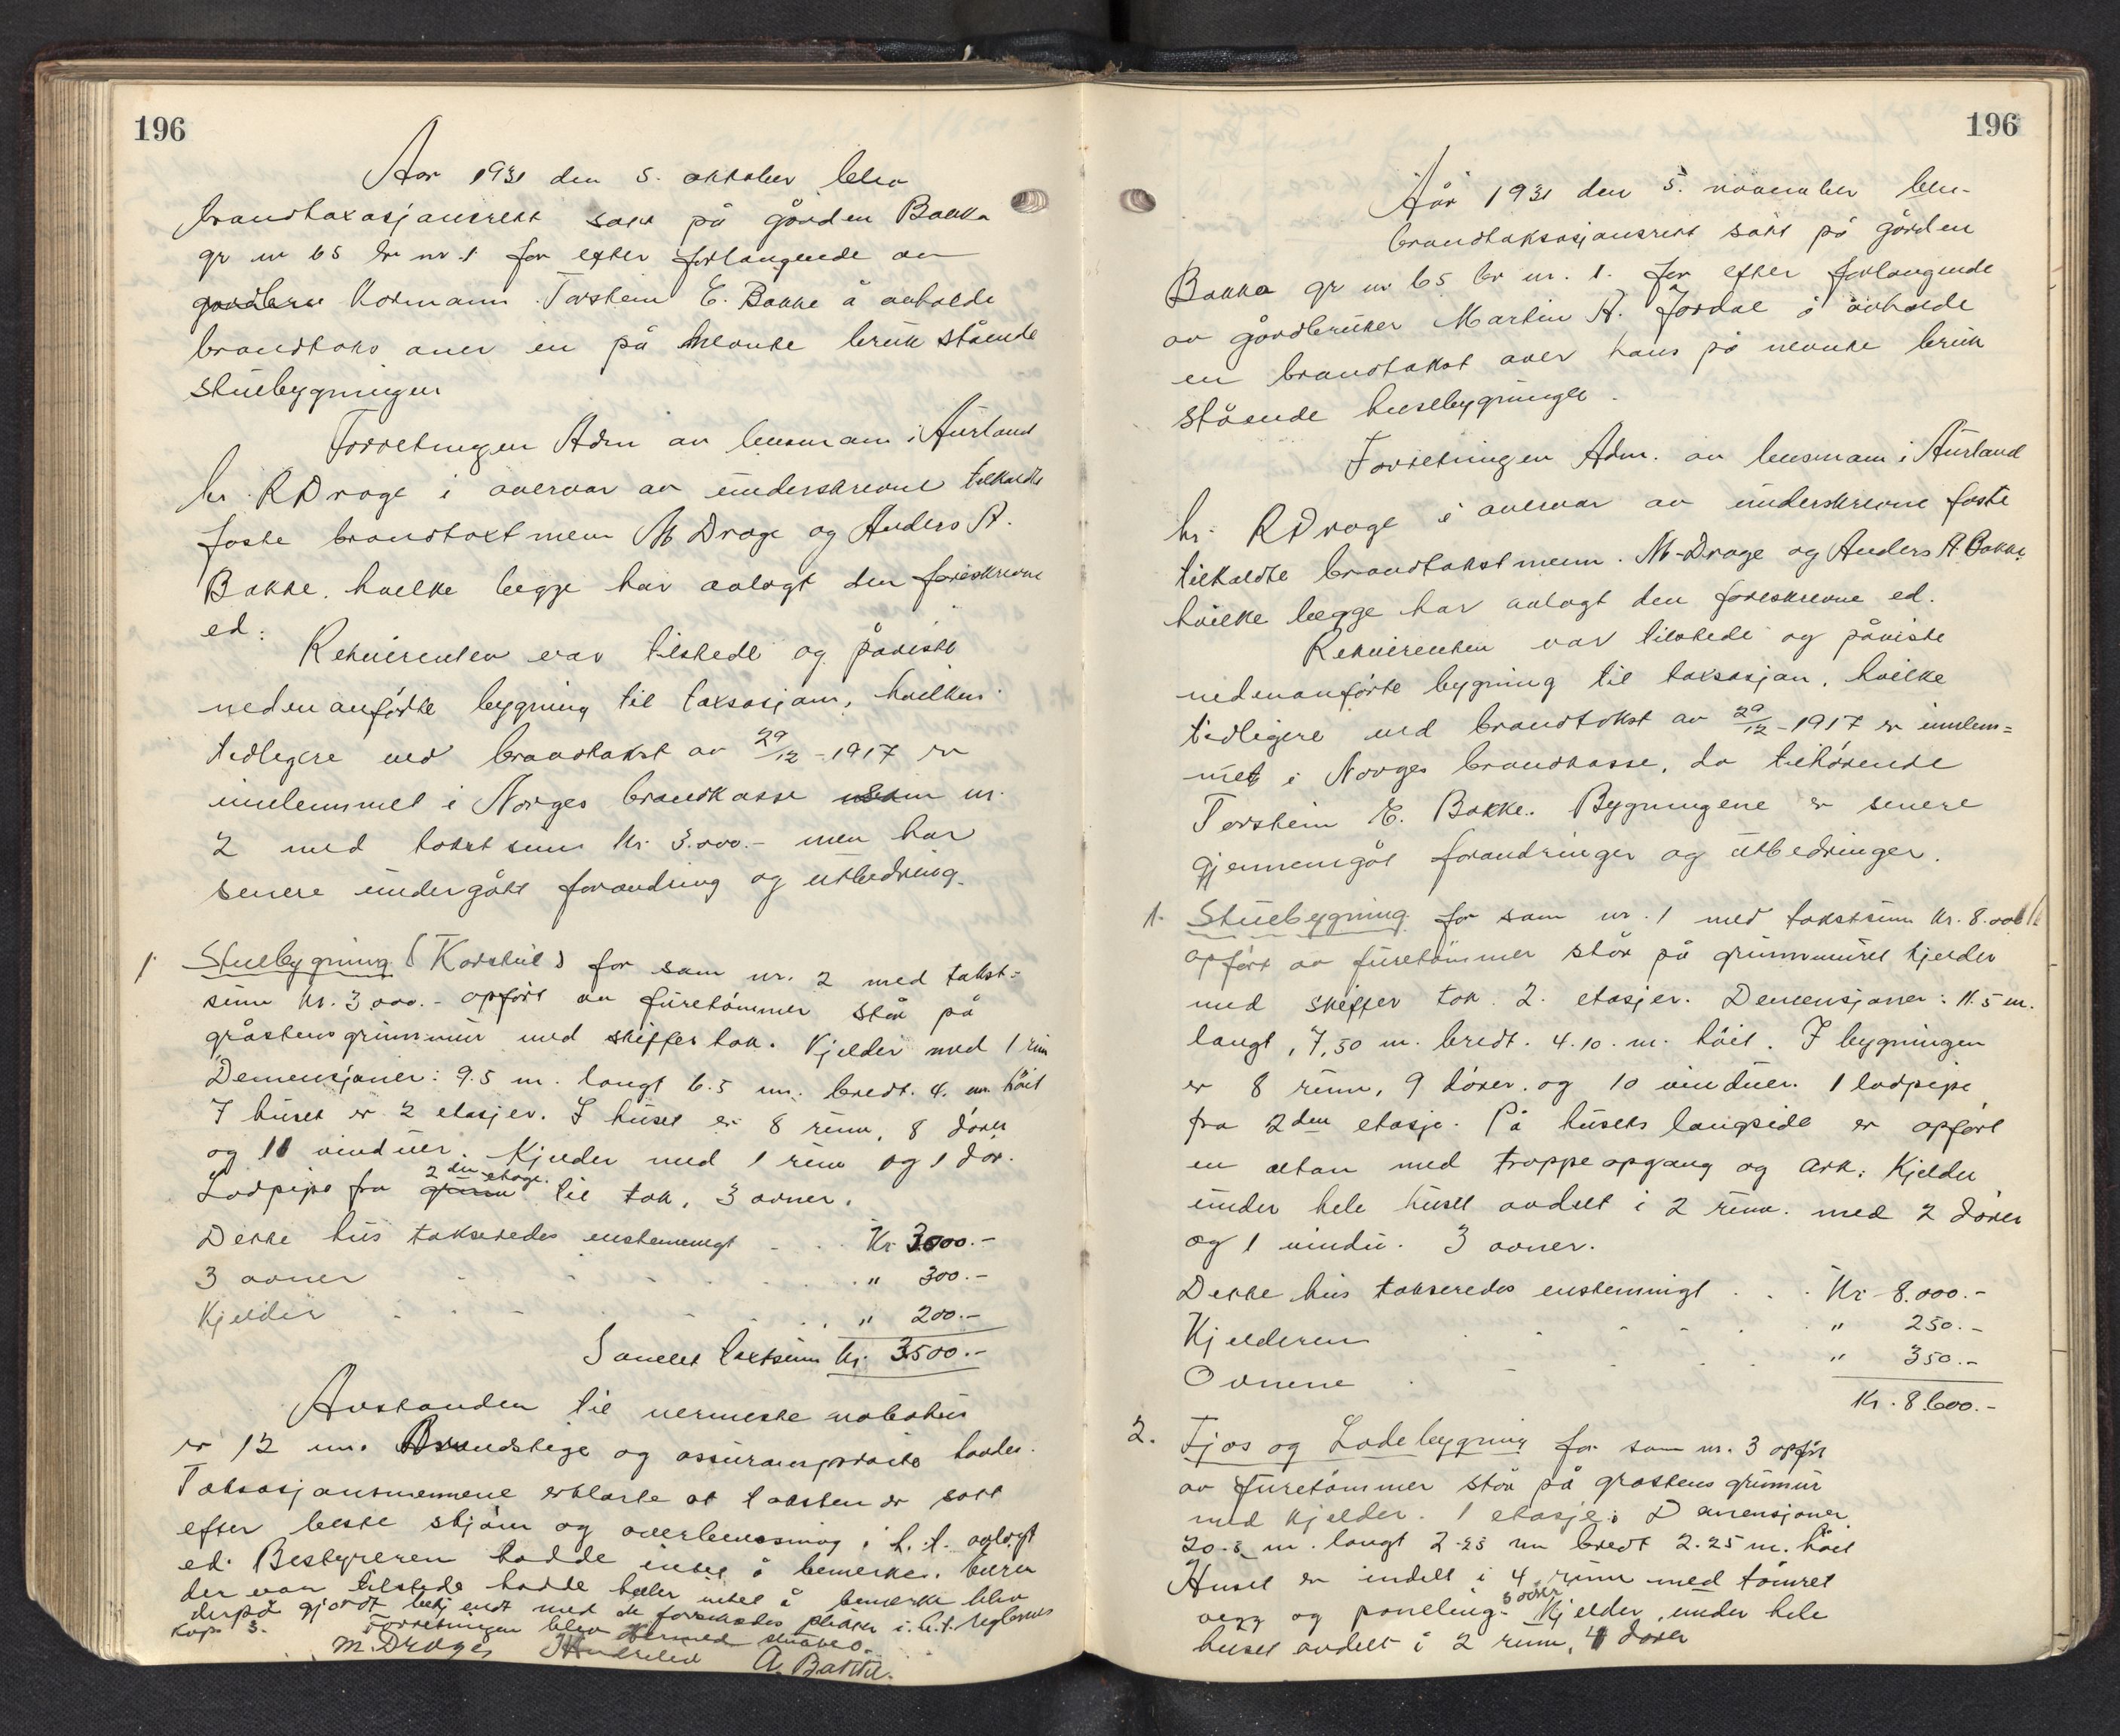 196
Aar 1931 den 5. oktober blev
brandtaxasjonsrett satt på gården Bakka
gr nr 65 br nr. 1 for efter forlangende av
gardbru Kårmann Torstein E. Bakke å avholde
brandtakst over en på nevnte bruk stående
stuebygningen
Forretningen Adm av lensmann i Aurland
hr. R Drage i overvær av underskrevne tilkaldte
faste brandtaxtmenn M Drage og Anders A.
Bakke. hvilke begge har avlagt den foreskrevne
ed:
Rekvirenten var tilstede og påviste
nedenanførte bygning til taxasjon, hvilken
tidligere ved brandtakst av 29/12 - 1917 er
innlemmet i Norges brandkasse som nr.
2 med takst sum kr. 3.000.- men har
senere undergått forandring og utbedring.
1 Stuebygning (Kårstul) for som nr. 2 med takst=
sum kr. 3.000.- opført av furetømmer står på
gråstensgrunnmur med skiffertak. Kjelder med 1 rum
Demensjoner: 9.5 m. langt 6.5 m. bredt. 4. m. høit
I huset er 2 etasjer. I huset er 8 rum, 8 dører
og 11 vinduer. Kjelder med 1 rum og 1 dør.
Lodpipe fra grunn 2den etage. til tak, 3 ovner.
Dette hus takseredes enstemmigt - . . Kr 3000.-
3 ovner . . . " 300.-
Kjelder . . . " 200.-
Samlet taxtsum kr. 3500.-
Avstanden til nermeste nabohus
er 12 m. Brandstige og assuranseplate havdes.
Taksasjonsmennene erklærte at taksten er satt
efter beste skjønn og overbevisning i h. t. avlagt
ed. Bestyreren hadde intet å bemerke. Eieren
der var tilstede hadde heller intet å bemerke blev
derpå gjordt bekjendt med de forsikredes plikter i. h. t. reglenes
kap. 3. Forretningen blev dermed sluttet.
M. Drage A. Bakka.
196
Aår 1931 den 5. november blev
brandtaksasjonsrett satt på gården
Bakka gr nr 65 br nr. 1. for efter forlangende
av gårdbruker Martin A. Jordal å avholde
en brandtakst over hans på nevnte bruk
stående husebygninger.
Forretningen Adm. av lensmann i Aurland
hr. R Drage i overvær av underskrevne faste
tilkaldte brandtakstmenn. M. Drage og Anders A Bakke,
hvilke begge har avlagt den foreskrevne ed.
Rekvirenten var tilstede og påviste
nedenanførte bygning til taxsasjon, hvilke
tidligere ved brandtakst av 29/12 - 1917 er innlem=
met i Norges brandkasse, da tilhørende
Torstein E. Bakke. Bygningene er senere
gjennemgåt forandringer og utbedringer.
1. Stuebygning før som nr. 1 med takstsum kr. 8.000
opført av furetømmer står på grunnmuret kjelder
med skiffer tak. 2. etasjer. Demensjoner: 11.5 m.
langt, 7,50 m. bredt. 4.10. m. høit. I bygningen
er 8 rum, 9 dører. og 10 vinduer. 1 lodpipe
fra 2den etasje. På husets langside er opført
en altan med trappeopgang og ark. Kjelder
under hele huset avdelt i 2 rum. med 2 dører
og 1 vindu. 3 ovner.
Dette hus takseredes enstemmigt . . . Kr 8.000.-
Kjelderen . . . " 250.-
Ovnene . . . " 350.-
Kr. 8.600.-
2. Fjøs og Lodebygning før som nr. 3 opført
av furetømmer står på gråstens grunmur
med kjelder. 1 etasje. Demensjoner
20.5 m. langt 2.25 m bredt 2.25 m. høit
Huset er indelt i 4 rum med tømret
vegg og paneling. 3 dører Kjelder, under hele
huset avdelt i 2 rum, 4 dører